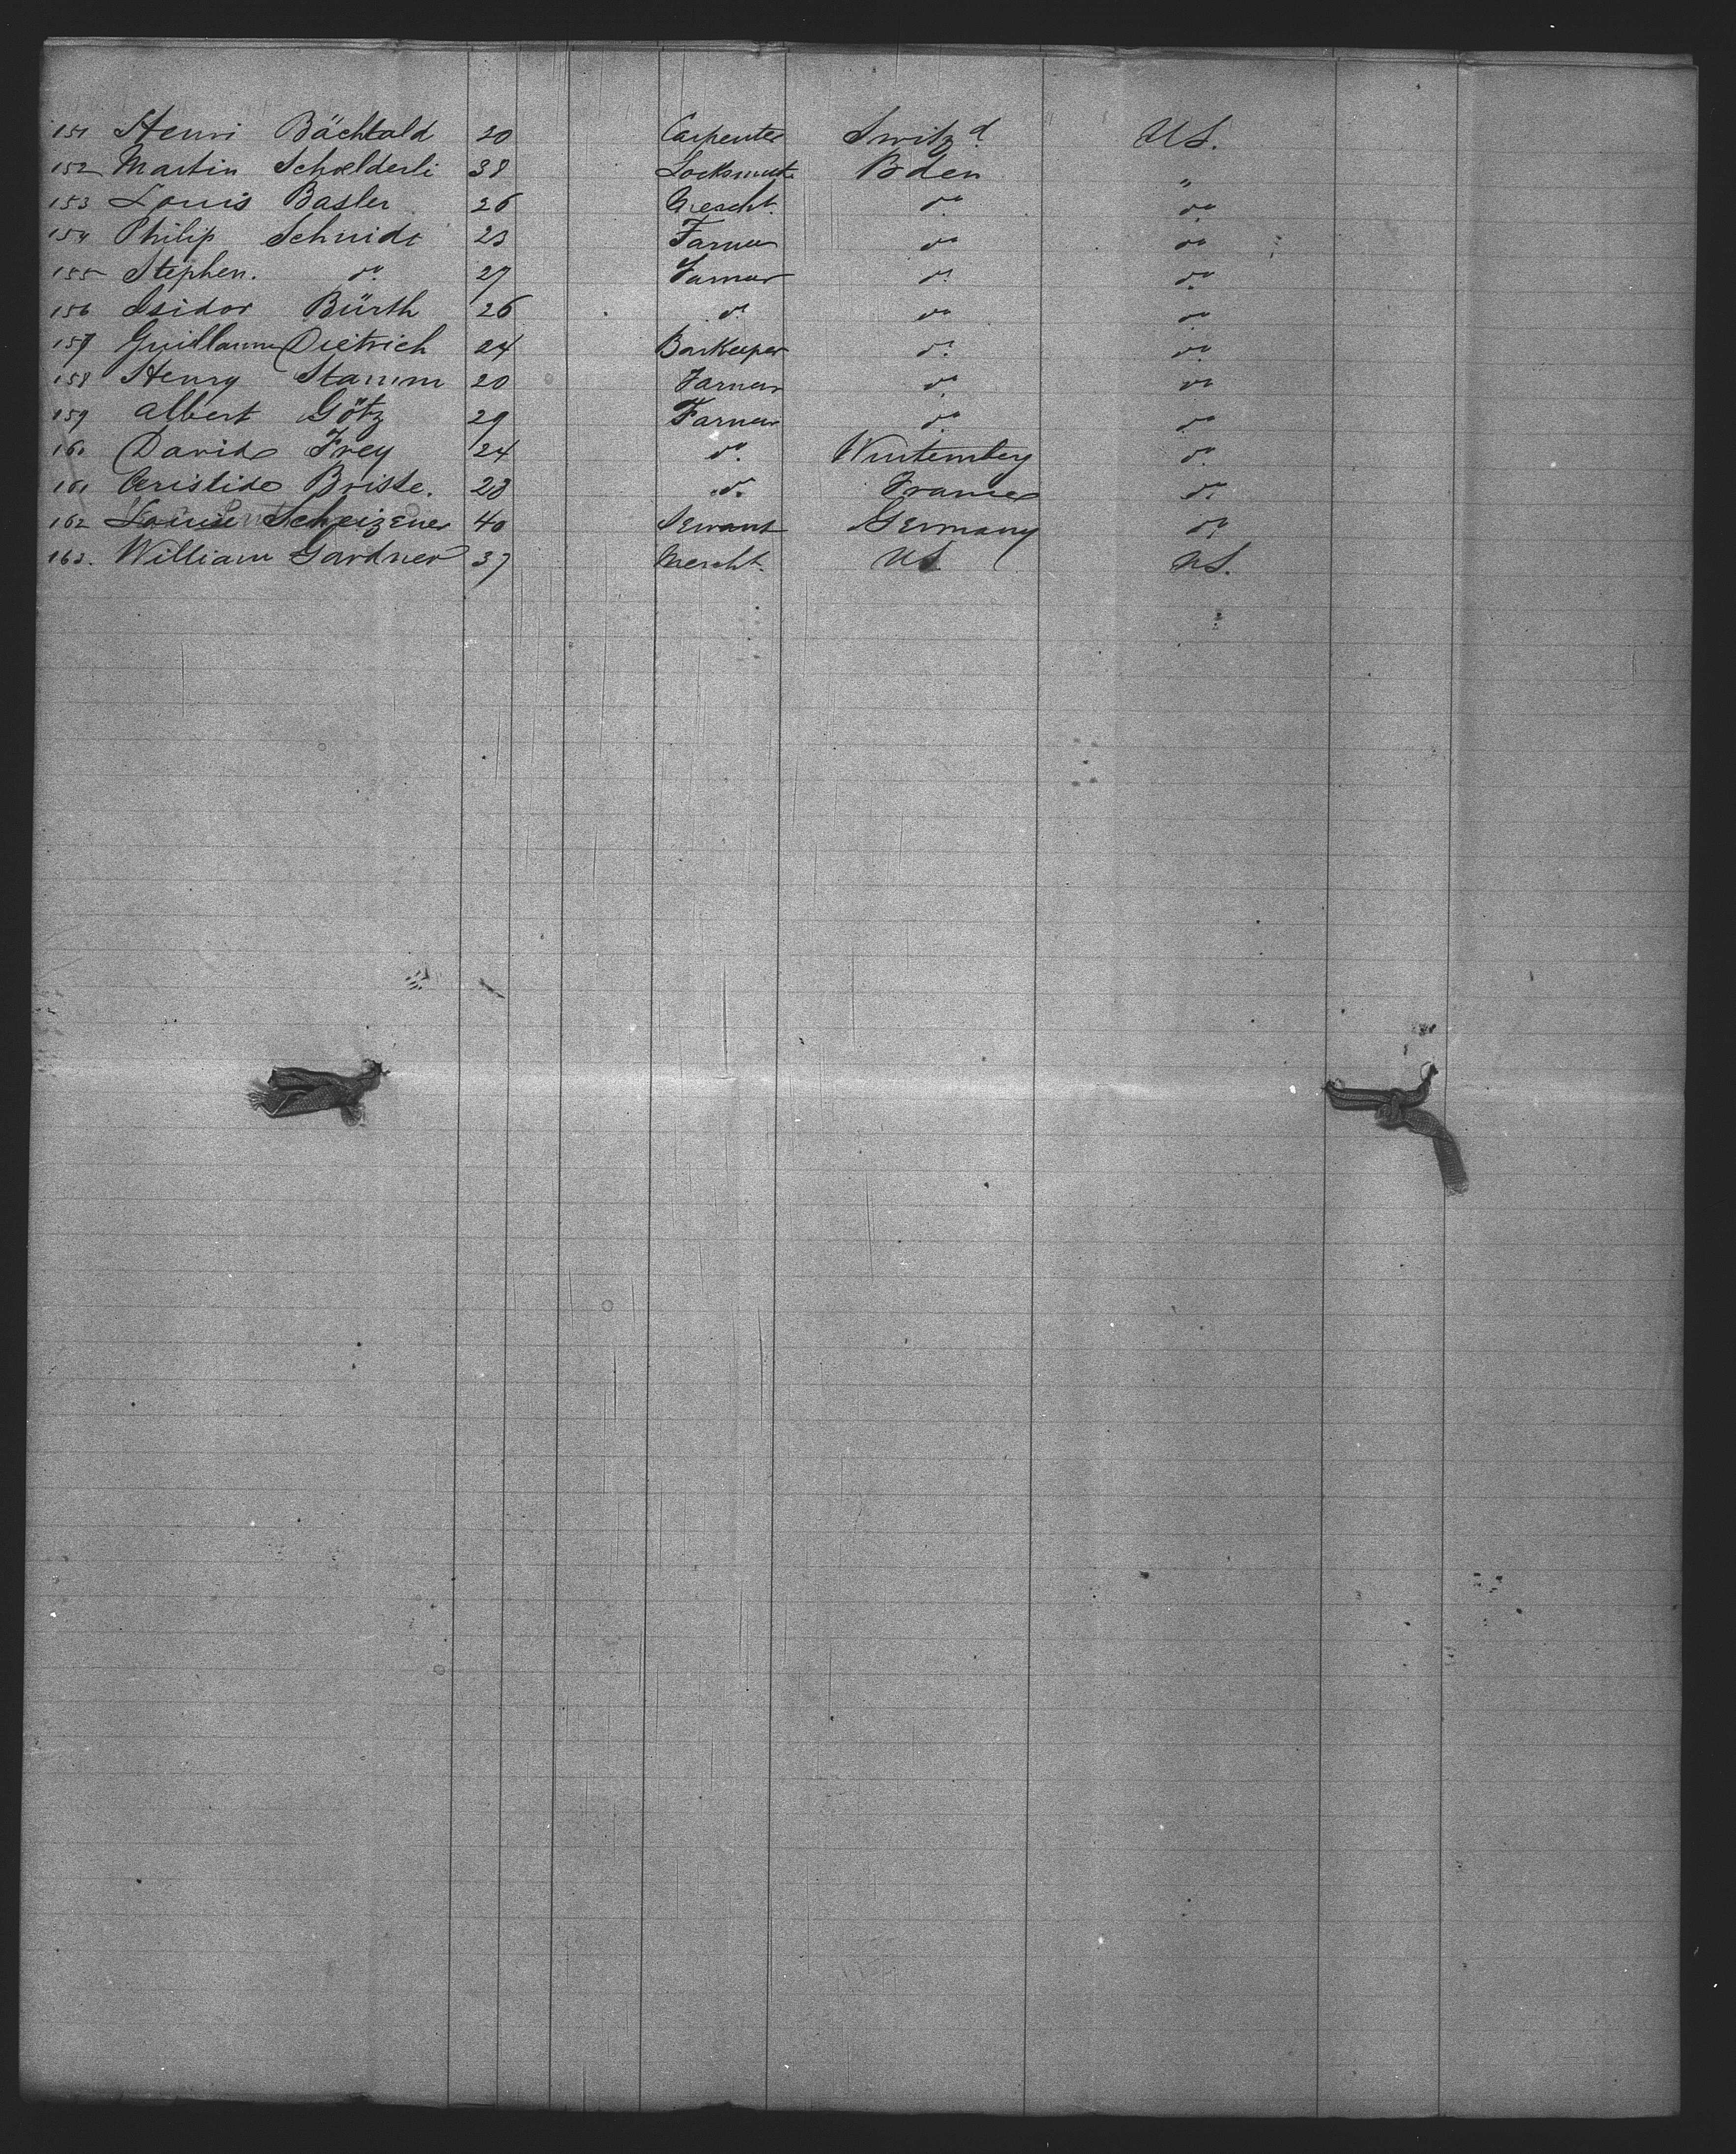 151 Henri Bächtold 20 Carpenter Switzd. U.S.
152 Martin Schælderli 38 Locksmith Bden "
153 Louis Basler 26 Mercht. do do
154 Philip Schnidt 23 Farmer do do
155 Stephen. do 27 Farmer do do
156 Isidor Bürth 26 do do do
157 Guillaume Dietrich 24 Barkeeper do do
158 Henry Stamm 20 Farmer do do
159 Albert Götz 29 Farmer do do
160 David Frey 24 do. Wurtemberg do
161 Aristide Briste. 23 do. France do
162 Louise 40 Servant Germany do
163. William Gardner 37 Mercht. U.S. U.S.